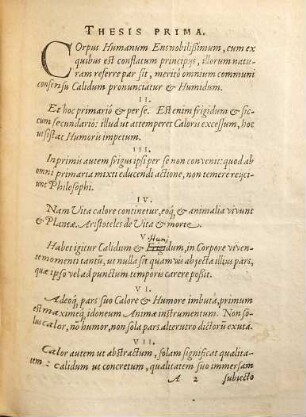 THESIS PRIMA.
COrpus Humanum Ens nobilissimum, cum ex
quibus est conflatum principijs, illorum natu-
ram referre par sit, meritò omnium communi
consensu Calidum pronunciatur & Humidum.
II.
Et hoc primariò & per se. Est enim frigidum & sic-
cum secundariò: illud ut attemperet Caloris excessum, hoc
ut sistat Humoris impetum.
III.
Inprimis autem frigus ipsi per se non convenit: quod ab
omni primaria mixti educendi actione, non temere reijci-
unt Philosophi.
IV.
Nam Vita calore continetur, eoq́; & animalia vivunt
& Plantæ. Aristoteles de Vita & morte.
V. Hum
Habet igitur Calidum & Frigidum, in Corpore viven-
te momenti tantũ, ut nulla sit quamvis abjecta illius pars,
quæ ipso vel ad punctum temporis carere possit.
VI.
Adeoq́; pars suo Calore & Humore imbuta, primum
est maximeq́; idoneum Animæ instrumentum. Non so-
lus calor, no humor, non sola pars alterutro dictorũ exuta.
VII.
Calor autem ut abstractum, solam significat qualita-
tem: Calidum ut concretum, qualitatem suo immersam
A 2 subjecto